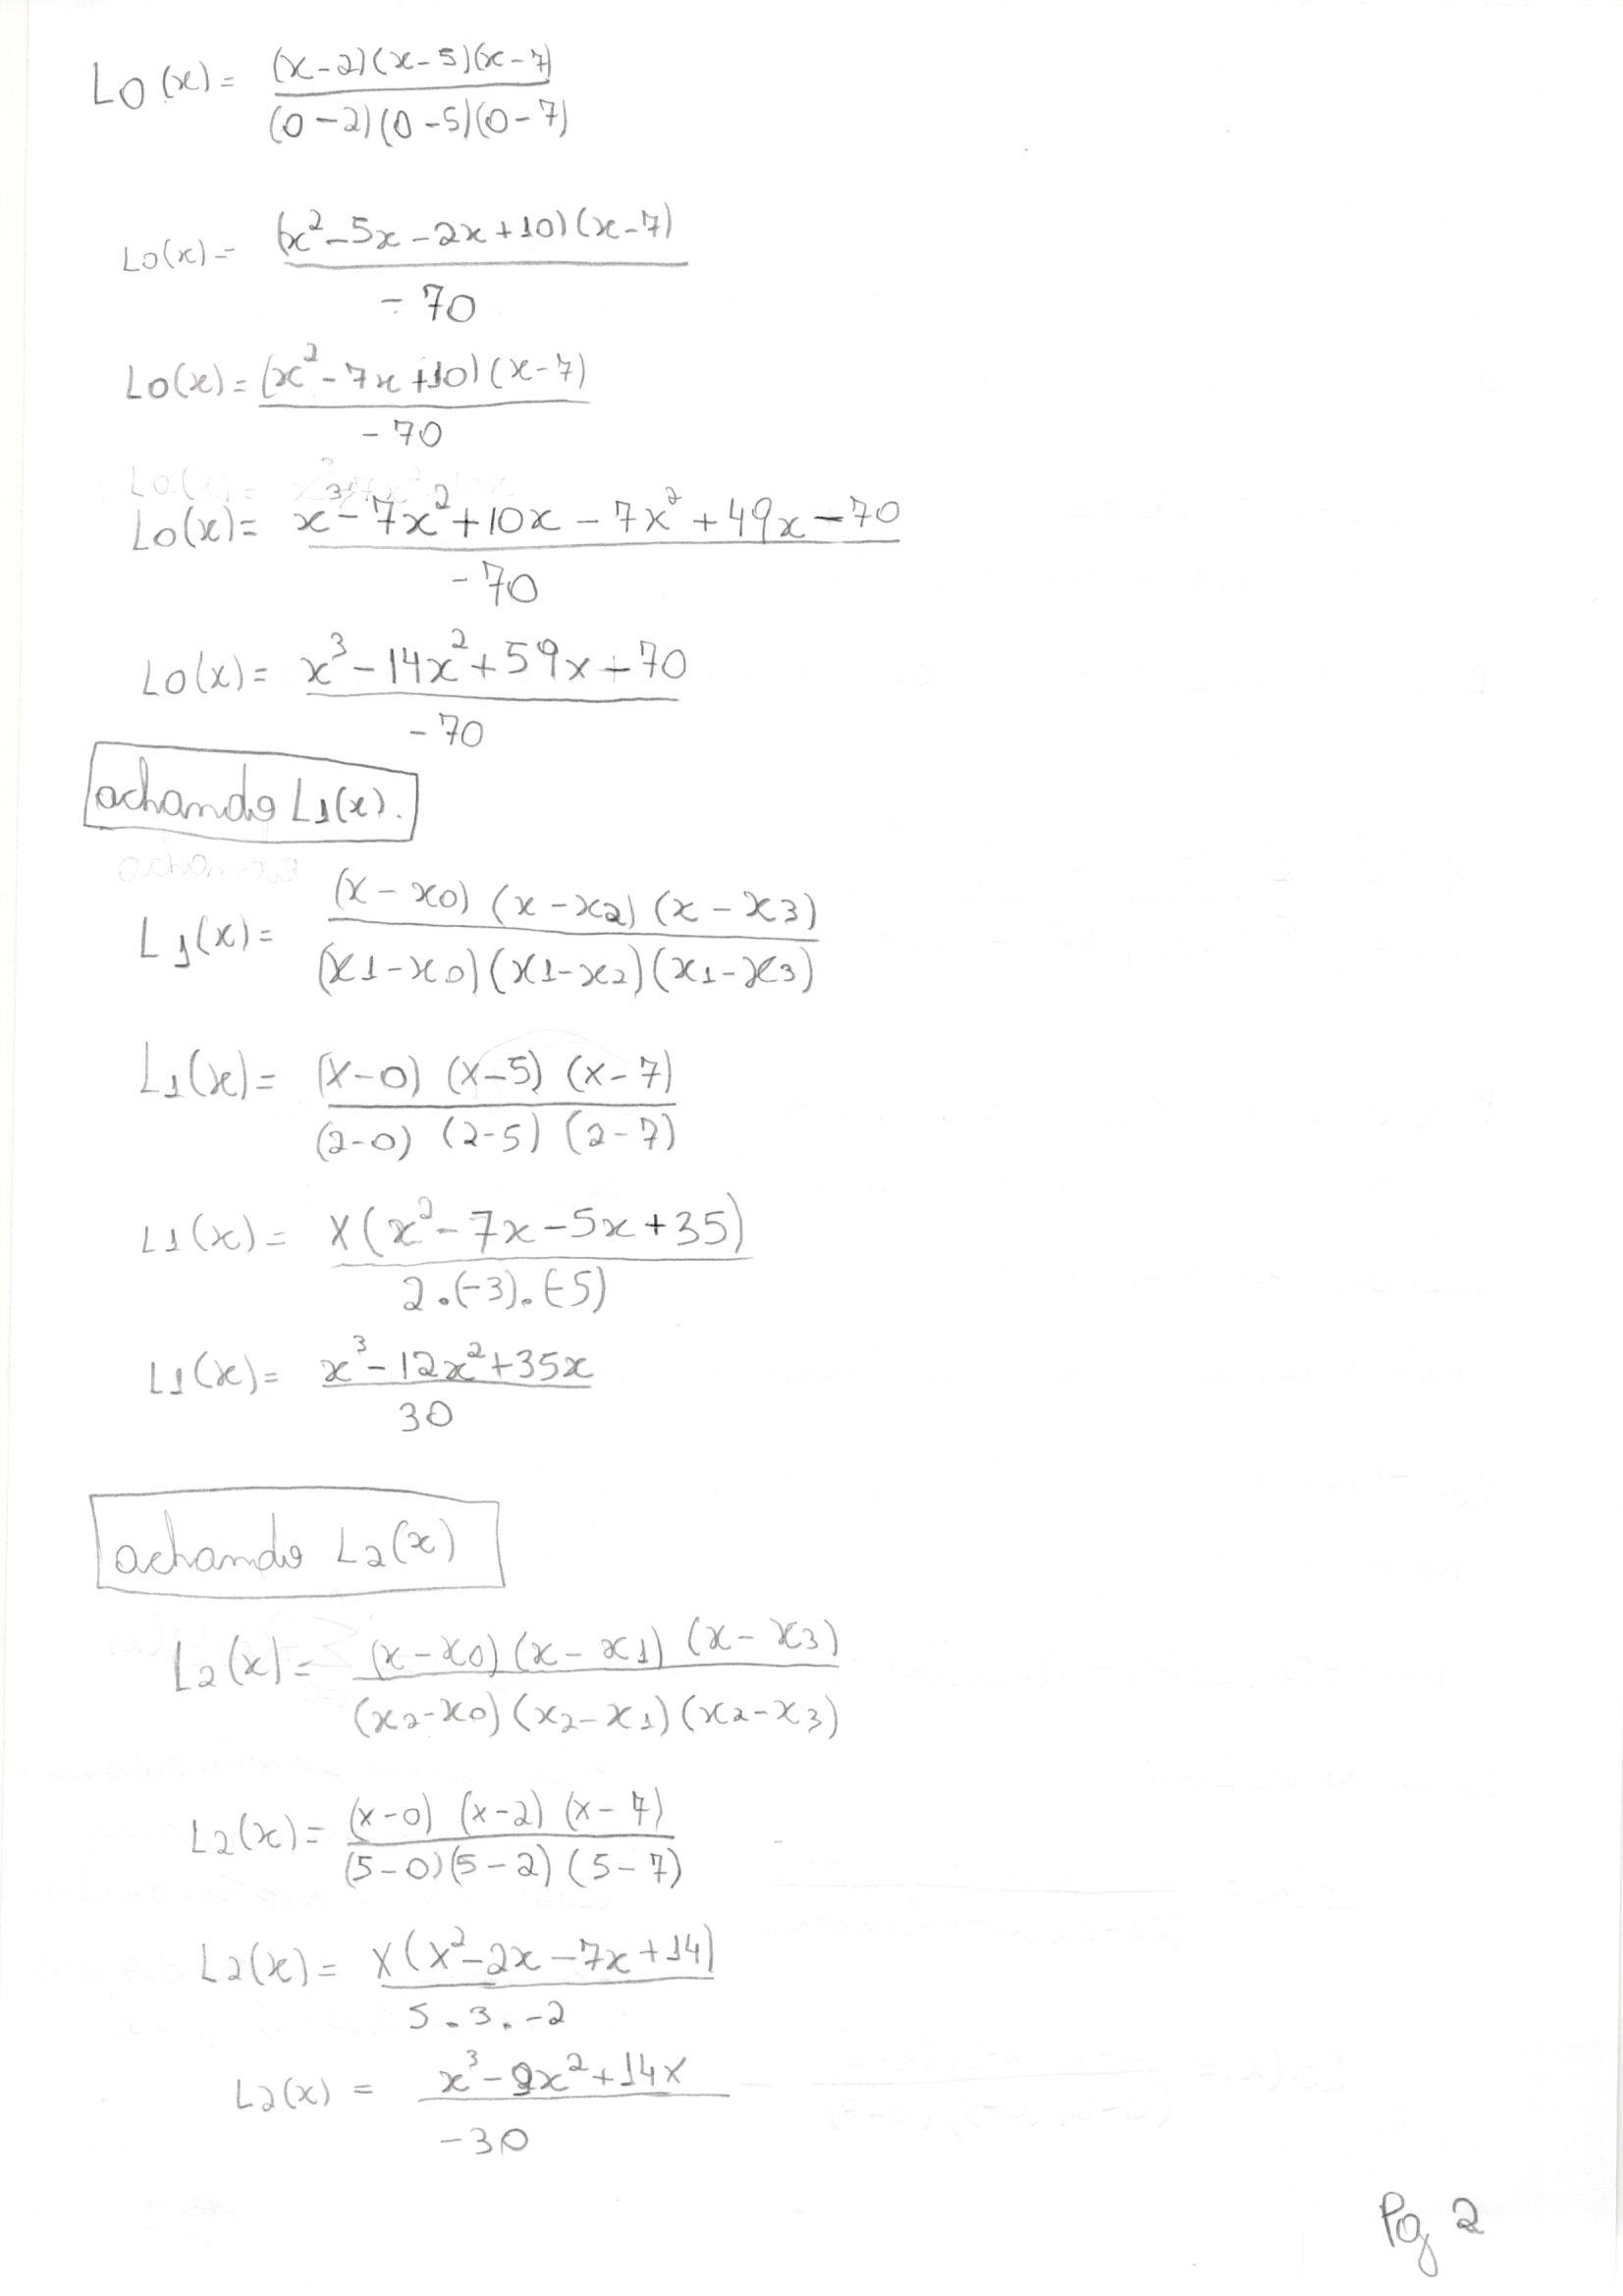 L0(x) = (x-2)(x-5)(x-7)
(0-2)(0-5)(0-7)
L0(x) = (x²-5x-2x+10)(x-7)
-70
L0(x) = (x²-7x+10)(x-7)
-70
L0(x) = x³-7x²+10x-7x²+49x-70
-70
L0(x) = x³-14x²+59x-70
-70
achando L1(x).
L1(x) = (x-x0)(x-x2)(x-x3)
(x1-x0)(x1-x2)(x1-x3)
L1(x) = (x-0)(x-5)(x-7)
(2-0)(2-5)(2-7)
L1(x) = x(x²-7x-5x+35)
2.(-3).(-5)
L1(x) = x³-12x²+35x
30
achando L2(x)
L2(x) = (x-x0)(x-x1)(x-x3)
(x2-x0)(x2-x1)(x2-x3)
L2(x) = (x-0)(x-2)(x-7)
(5-0)(5-2)(5-7)
L2(x) = x(x²-2x-7x+14)
5.3.-2
L2(x) = x³-9x²+14x
-30
Pg 2